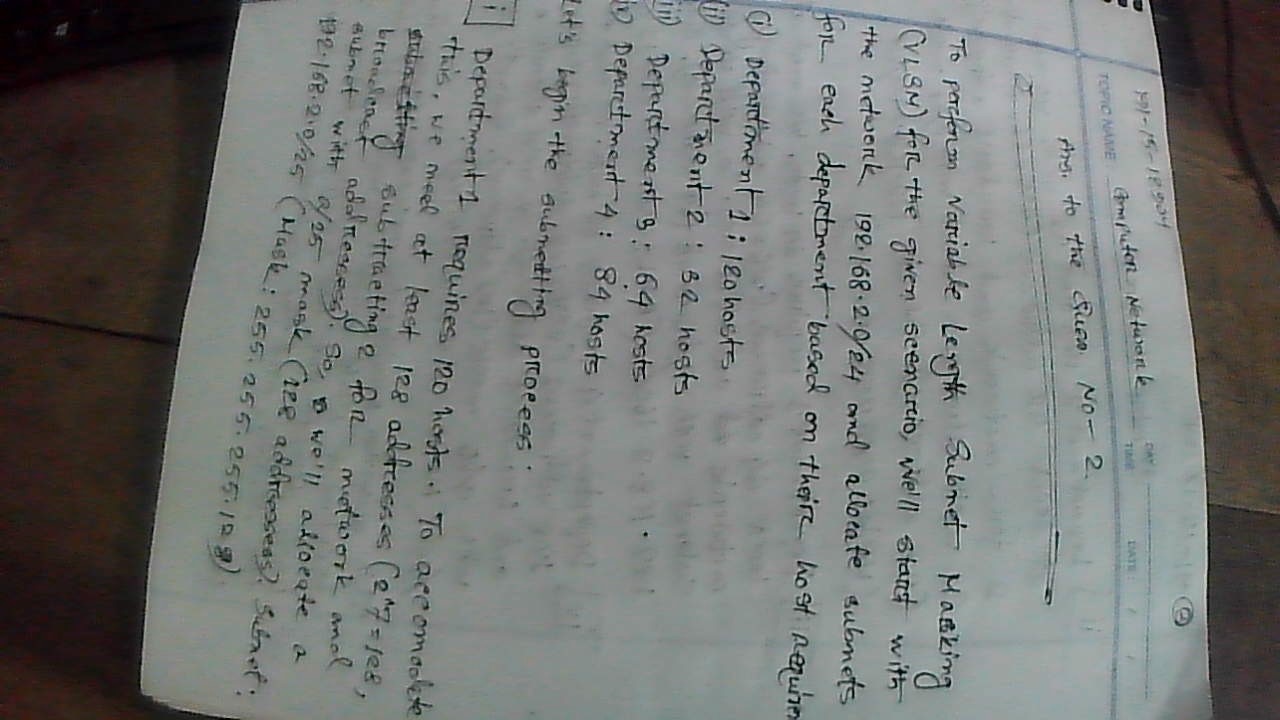 2
191-15-12504
TOPIC NAME: Computer Network DAY:
TIME: DATE: / /
Ans. to the Ques. No - 2.
To perform Variable Length Subnet Masking
(VLSM) for the given scenario, we'll start with
the network 192.168.2.0/24 and allocate subnets
for each department based on their host require
(i) Department 1 : 120 hosts
(ii) Department 2 : 32 hosts
(iii) Department 3 : 64 hosts
(iv) Department 4 : 84 hosts
Let's begin the subnetting process :
i Department 1 requires 120 hosts. To accomodate
this, we need at least 128 addresses (2^7=128,
subtracting 2 for network and
broadcast addresses). So, we'll allocate a
subnet with a/25 mask (128 addresses). Subnet:
192.168.2.0/25 (Mask: 255.255.255.128)